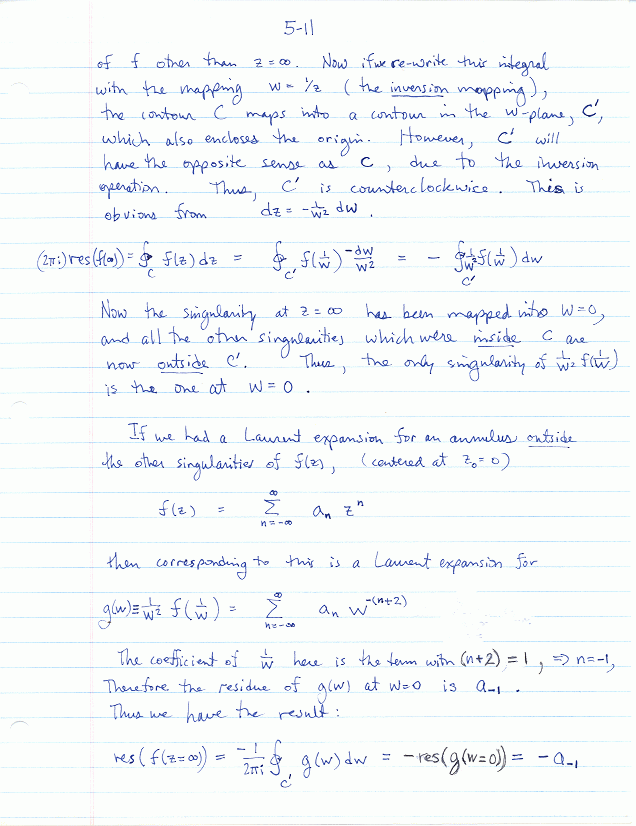 5-11
of f other than z = ∞. Now if we re-write this integral
with the mapping w = 1/z (the inversion mapping),
the contour C maps into a contour in the w-plane, C',
which also encloses the origin. However, C' will
have the opposite sense as C, due to the inversion
operation. Thus, C' is counterclockwise. This is
obvious from dz = -1/w² dw.
(2πi) res(f(∞)) = ∮_C f(z) dz = ∮_C' f(1/w) -dw/w² = - ∮_C' 1/w² f(1/w) dw
Now the singularity at z = ∞ has been mapped into w = 0,
and all the other singularities which were inside C are
now outside C'. Thus, the only singularity of 1/w² f(1/w)
is the one at w = 0.
If we had a Laurent expansion for an annulus outside
the other singularities of f(z), (centered at z₀ = 0)
f(z) = ∑_{n=-∞}^{∞} aₙ zⁿ
then corresponding to this is a Laurent expansion for
g(w) ≡ 1/w² f(1/w) = ∑_{n=-∞}^{∞} aₙ w^{-(n+2)}
The coefficient of 1/w here is the term with (n+2) = 1, ⇒ n = -1,
Therefore the residue of g(w) at w=0 is a₋₁.
Thus we have the result:
res(f(z=∞)) = -1/2πi ∮_C' g(w) dw = -res(g(w=0)) = -a₋₁